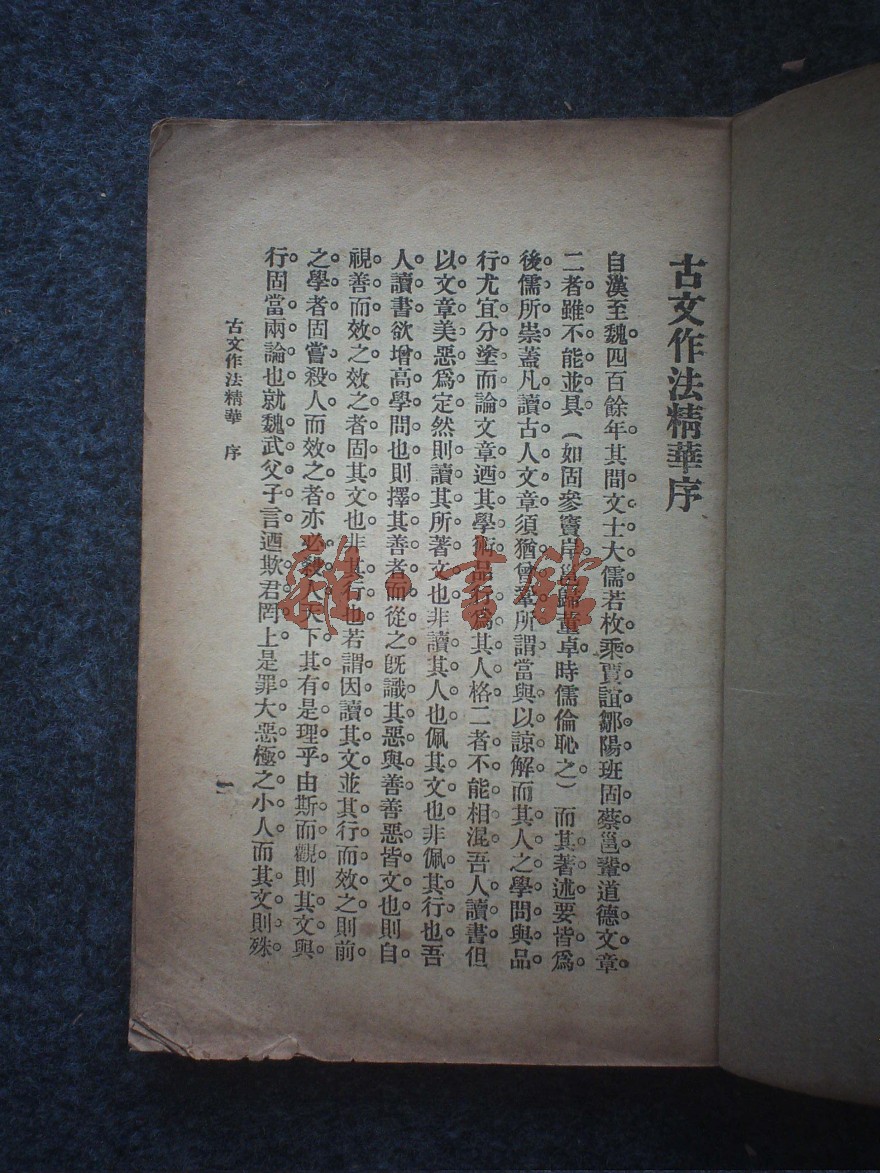 古文作法精華序
自漢至魏四百餘年。其間文士大儒若枚乘賈誼鄒陽班固。蔡邕輩。道德文章。
二者雖不能並具。（如固參竇岸邕歸董卓時儒倫恥之）而其著述要皆爲
後儒所崇。蓋凡讀古人文章。須猶曾鞏所謂當與以諒解。而其人之學問與品
行。尤宜分塗而論。文章迺其學術。品行爲其人格。二者不能相混。吾人讀書。但
以文章美惡爲定。然則讀其所著文也。非讀其人也。佩其文也。非佩其行也。吾
人讀書。欲增高學問也。則擇其善者而從之。旣識其惡與善。善惡皆文也。則自
視善而效之。效之者固其文也。非其行也。若謂因讀其文並其行而效之。則前
之學者固嘗殺人。而效之者亦必殺人。天下其有是理乎。由斯而觀。則其文與
行。固當兩論也。就魏武父子言。迺欺君罔上。是罪大惡極之小人。而其文則殊
古文作法精華 序
一
雜·書館